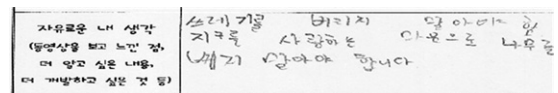 자유로운 내 생각
(동영상을 보고 느낀 점,
더 알고 싶은 내용,
더 개발하고 싶은 것 등)
쓰레기를 버리지 말아야 함
지구를 사랑하는 마음으로 나무를
베지 말아야 합니다